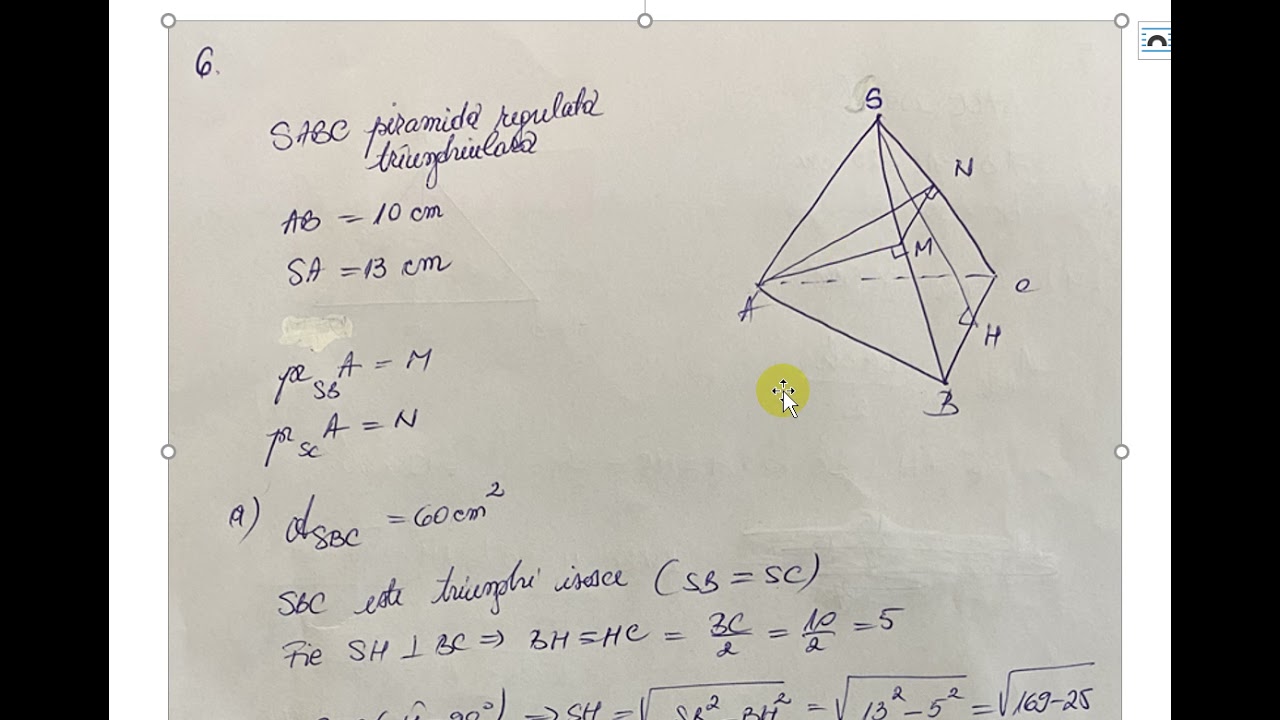 6.
SABC piramidă regulată
triunghiulară
AB = 10 cm
SA = 13 cm
pr_SB A = M
pr_SC A = N
S
N
M
A
C
H
B
a) A_SBC = 60 cm²
SBC este triunghi isosce (SB = SC)
Fie SH ⊥ BC ⇒ BH = HC = BC/2 = 10/2 = 5
90°) ⇒ SH = √(SB² - BH²) = √(13² - 5²) = √(169-25)